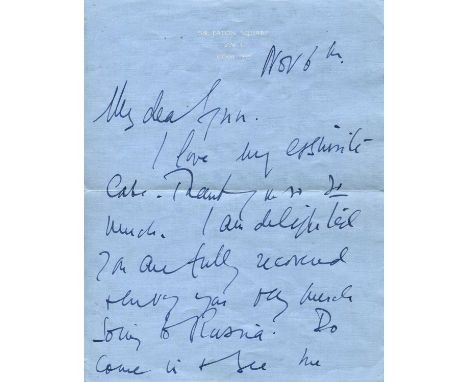 54, EATON SQUARE
S.W.1.
Nov 6th.
My dear Lynn.
I love my exquisite
Case. Thank you so so
much. I am delighted
you are fully recovered
& envy you very much
going to Russia. Do
come in & see me